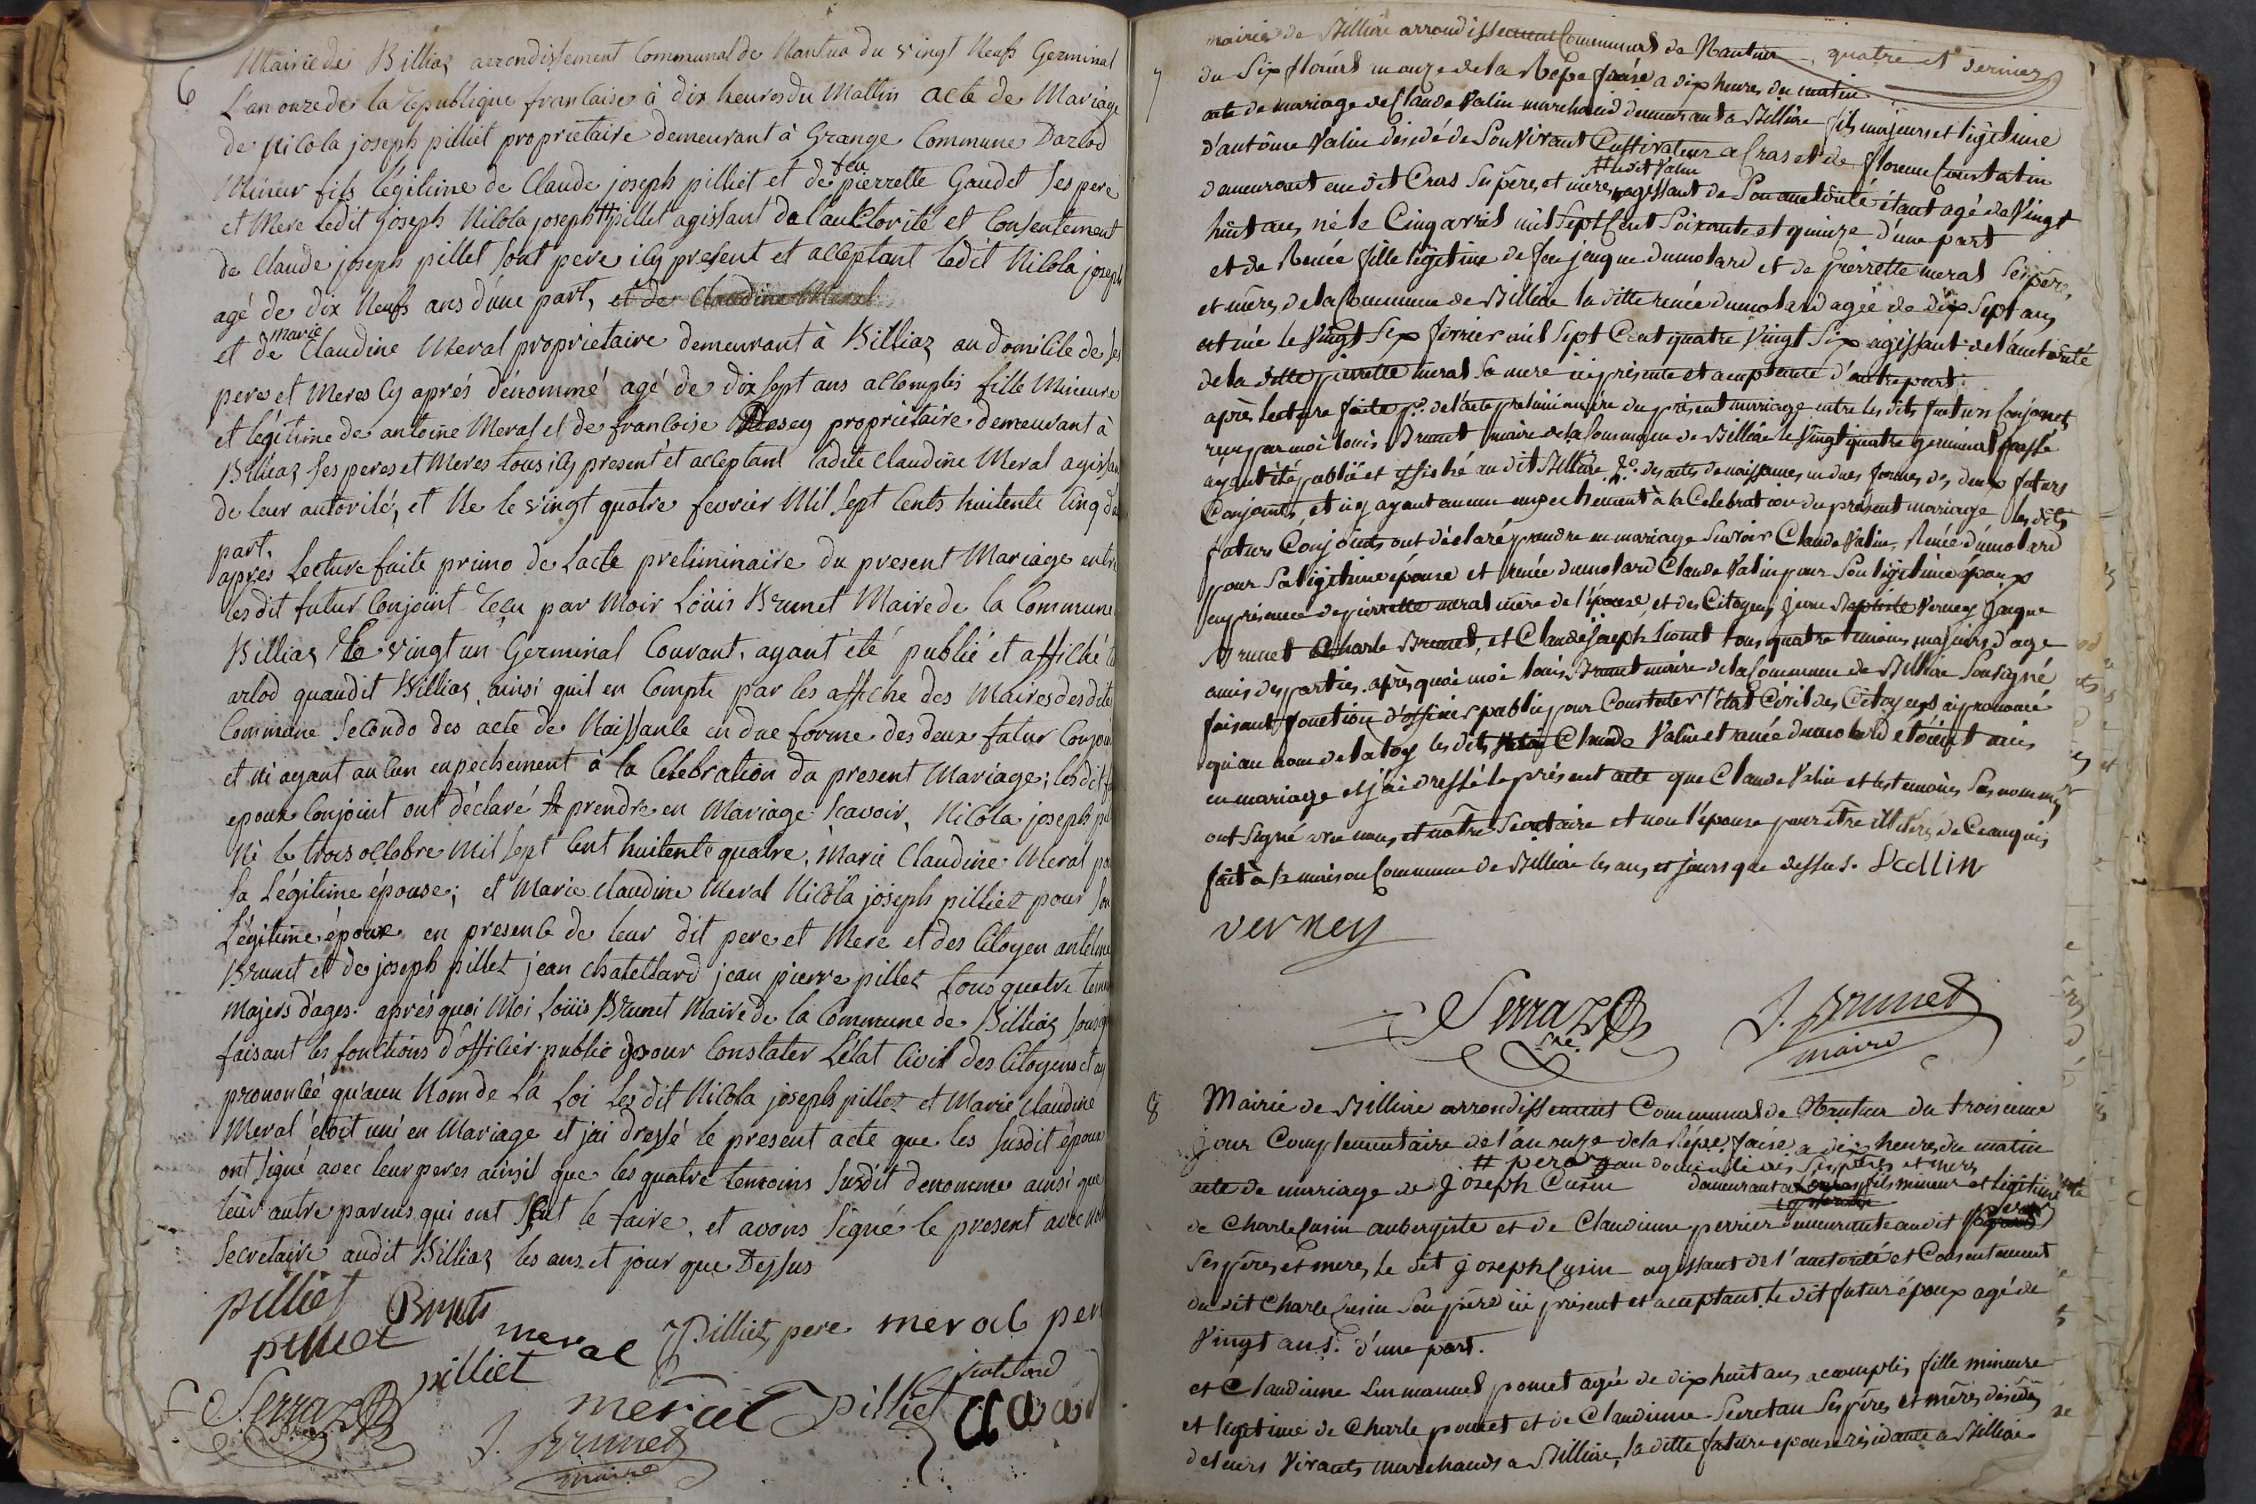 6
Mairie de Billiaz arrondissement Communal de Nantua du vingt Neufs Germinal
L'an onze de la republique francaise à dix heures du Mattin acte de Mariage
de Nicola joseph pilliet proprietaire demeurant à Grange Commune Darlod
Mineur fils légitime de Claude joseph pilliet et de feu pierrette Gaudet Ses pere
et Mere ledit joseph Nicola joseph pillet agissant de l'auctorité et Consentement
de Claude joseph pillet Sont pere icy present et acceptant ledit Nicola joseph
agé de dix Neufs ans d'une part, et de Claudine Meral
et de marie Claudine Meral proprietaire demeurant à Billiaz au domicile de Ses
peres et Meres Cy aprés dénommé agé de dix Sept ans accomplis fille Mineure
et légitime de antoine Meral et de francoise proprietaire demeurant à
Billiaz Ses peres et Meres tous icy present et acceptant ladite Claudine Meral agissant
de leur autorité, et Ne le vingt quatre fevrier Mil Sept Cents huitente Cinq
part.
après Lecture faite primo de Lacte preliminaire du present Mariage entre
lesdit futur Conjoint reçu par Moir Loüis Brunet Maire de la Commune
Billiaz Le vingt un Germinal Courant, ayant été publié et affiché
arlod quaudit Billiaz ainsi quil en Compte par les affiche des Maires desdite
Commune Secondo des acte de Naissance en due forme des deux futur Conjoint
et ni ayant aucun enpechement à la Celebration du present Mariage; lesdit
epoux Conjoint ont déclaré prendre en Mariage Scavoir, Nicola joseph
Né le trois octobre Mil Sept Cent huitente quatre, Marie Claudine Meral
Sa Légitime épouse; et Marie Claudine Meral Nicola joseph pilliez pour Son
Légitime époux en presence de leur dit pere et Mere et des Citoyen antelme
Brunet et de joseph pillet jean chatellard jean pierre pillet tous quatre
Majers d'ages. aprés quoi Moi Loüis Brunet Maire de la Commune de Billiaz
faisant les fonctions d'officier public pour Constater L'état Civil des Citoyens et
prononcée qu'auu Nom de La Loi Les dit Nicola joseph pillez et Marie Claudine
Meral étoit uni en Mariage et jai Dressé le present acte que les Susdit époux
ont Signé avec leur peres ainsil que les quatre temoins Susdit denommé ainsi que
leur autre parens qui ont Scut le faire, et avons Signé le present avec
Secretaire audit Billiaz les ans et jour que Dessus
pilliet
pilliet
meral
Pilliez pere meral pere
pilliet
Serraz
meral Pilliet
J. Brunet
maire
7
mairie de Billiaz arrondissement Communal de Nantua quatre et dernier
du Six floréal an onze de la Repe frcaise a dix heures du matin
acte de mariage de Claude Valin marchand demeurant a Billiaz fils majeur et légitime
d'antoine Valin décédé de Son Vivant Cultivateur a Cras et de
demeurant au dit Cras Ses pères et meres ledit Valin agissant de Son auctorité étant agé de Vingt
huit ans, né le Cinq avril mil Sept Cent Soixante et quinze d'une part
et de Renée fille légitime de feu jaque dumolard et de pierrette meral Ses pères
et mères de la Commune de Billiaz la ditte renée dumolard agée de dix Sept ans
et née le Vingt Six fevrier mil Sept Cent quatre Vingt Six agissant de l'auctorité
de la ditte pierrette meral Sa mere ici présente et acceptante d'autre part.
après lecture faite po. de l'acte preliminaire du présent marriage entre les dits futurs Conjoints
reçu par moi louis Brunet maire de la Commune de Billiaz le Vingt quatre germinal passé
ayant été publié et affiché au dit Billiaz, 2o. des actes de naissances en dues formes des deux futurs
Conjoints, et n'y ayant aucun empechement à la Celebration du présent mariage les dits
futurs Conjoints ont déclaré prendre en mariage Savoir Claude Valin, Renée dumolard
pour Sa légitime épouse et renée dumolard Claude Valin pour Son légitime époux
en présence de pierrette meral mère de l'épouse, et des Citoyens jean Baptiste Verney Jaque
Brunet Charle Brunet, et Claude joseph tous quatre temoins majeurs d'age
amis des parties. après quoi moi louis Brunet maire de la Commune de Billiaz Soussigné
faisant fonction d'officier public pour Constater l'état Civil des Citoyens ai prononcé
qu'au nom de la loy les dits Claude Valin et renée dumolard étoient unis
en mariage et j'ai dressé le présent acte que Claude Valin et les temoins Sus nommés
ont Signé avec nous, et nôtre Secretaire et non l'épouse pour être illiterée de Ce enquis
fait à la maison Commune de Billiaz les ans et jours que dessus. Vallin
verney
Serraz
Sre.
J. Brunet
maire
8
Mairie de Billiaz arrondissement Communal de Nantua du troisieme
jour Complementaire de l'an onze de la Répe. fcaise, a dix heures du matin
acte de mariage de Joseph Cusin demeurant fils mineur et légitime
de Charle Cusin aubergiste et de Claudinne perrier demeurante au dit
Ses pères et meres, le dit Joseph Cusin agissant de l'auctorité et Consentement
du dit Charle Cusin Son père ici présent et acceptant, le dit futur époux agé de
Vingt ans. d'une part.
et Claudinne Emmanuel pomet agée de dix huit ans acomplis, fille mineure
et légitime de Charle pomet et de Claudinne Secretan Ses pères et mères décédés
de leurs Vivants marchands a Billiaz, la ditte future epouse résidante a Billiaz